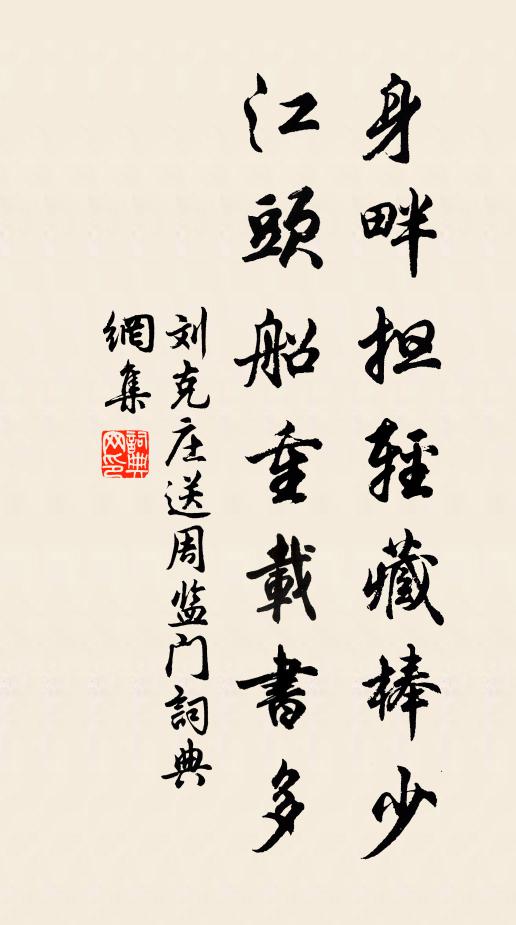 身畔担輕藏棒少
江頭船重載書多
刘克庄送周监门詞典
網集
詞典网印